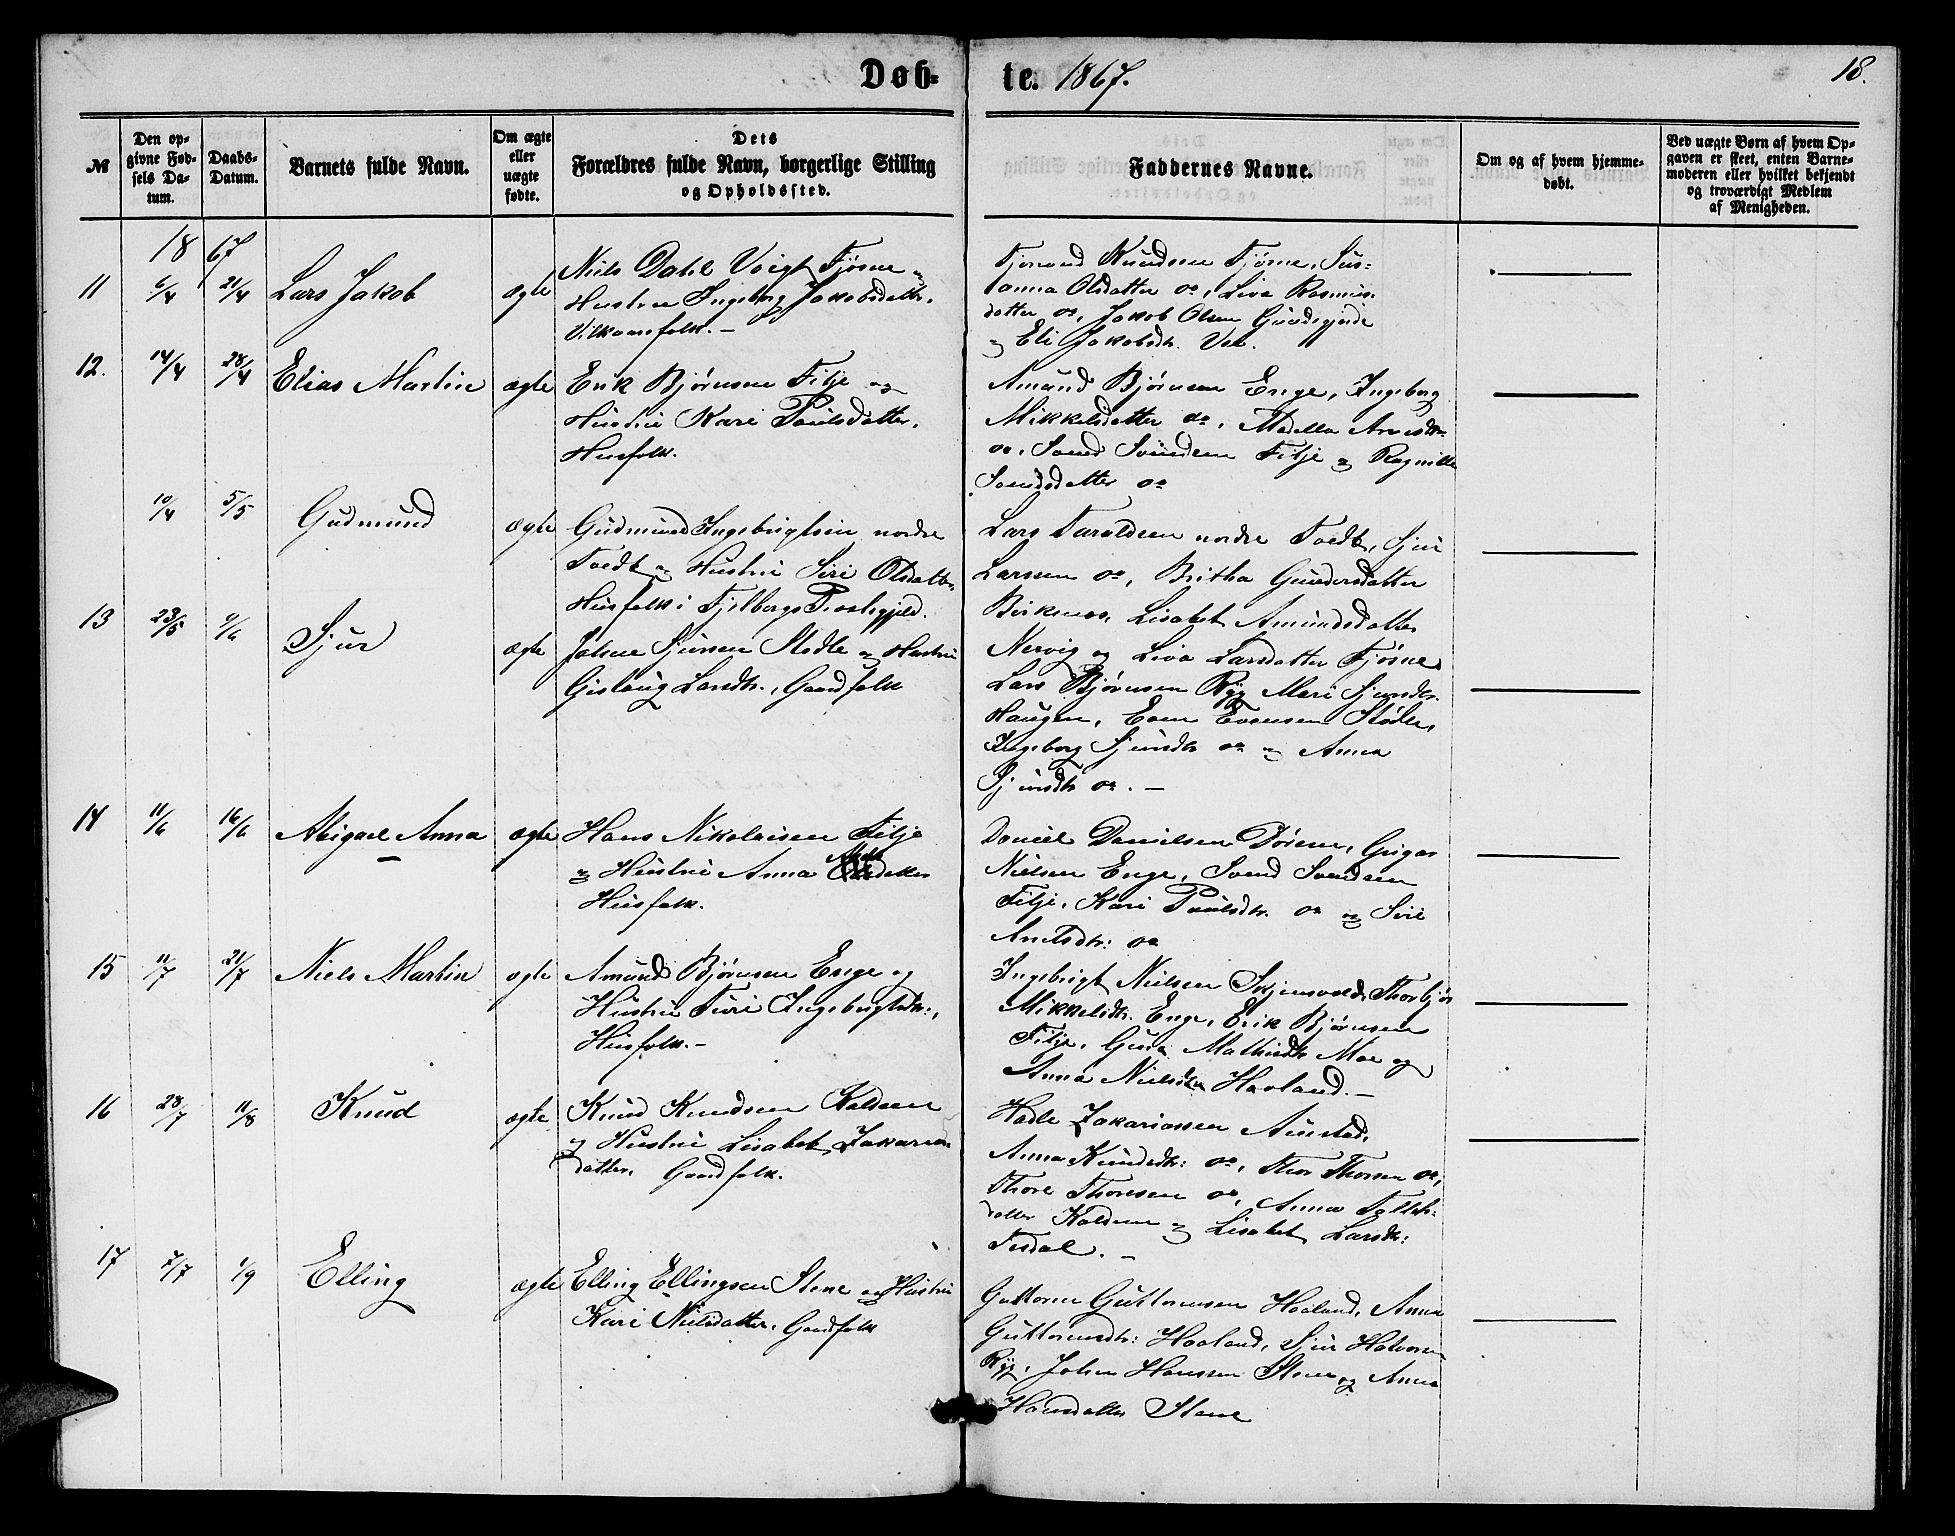 Døb-
te. 1867.
18.
№
Den op-
givne Fød-
sels Da-
tum.
Daabs-
Datum.
Barnets fulde Navn.
Om ægte
eller
uægte
fødte.
Dets
Forældres fulde Navn, borgerlige Stilling
og Opholdssted.
Faddernes Navne.
Om og af hvem hjemme-
døbt.
Ved uægte Børn af hvem Op-
gaven er skeet, enten Barne-
moderen eller hvilket bekjendt
og troværdigt Medlem
af Menigheden.
1867
11 6/4 21/4 Lars Jakob ægte Niels Dahl Voigt Fjøsne og
Hustru Ingeborg Jakobsdatter,
Vilkaarsfolk. –
Knudsen Fjøsne, Sus-
anna Olsdatter do, Liva Rasmus-
datter do, Jakob Olsen Gundegjerde
og Eli Jakobsdr.
12. 14/4 28/4 Elias Martin ægte Erik Bjørnsen Fitje og
Hustru Kari Poulsdatter,
Husfolk.
Amund Bjørnsen Enge, Ingeborg
Mikkelsdatter do,
do, Svend Svendsen Fitje og Ragnilde
Svendsdatter do
10/4 5/5 Gudmund ægte Gudmund Ingebrigtsen nordre
Tvedt og Hustru Siri Olsdatter,
Husfolk i Fjelbergs Præstegjeld.
Lars Taraldsen nordre Tvedt, Sjur
Larsen do, Britha Gundersdatter
Birkenes, Lisabet Amundsdatter
Nervig og Liva Larsdatter Fjøsne
13 23/5 9/6 Sjur ægte Johne Sjursen Stødle og Hustru
Gislaug Larsdtr., Gaardfolk
Lars Bjørnsen Ryg, Mari Sjursdtr.
Haugen, Even Evensen Stødle,
Ingeborg Sjursdtr do og Anna
Sjursdtr do. –
14 11/6 16/6 Abigael Anna ægte Hans Nikolaisen Fitje
og Hustru Anna
Husfolk.
Daniel Danielsen Døsene, Grigar
Nielsen Enge, Svend Svendsen
Fitje, Kari Poulsdtr. do og Siri
do
15 11/7 21/7 Niels Martin ægte Amund Bjørnsen Enge og
Hustru Turi Ingebrigtsdtr.,
Husfolk. –
Ingebrigt Nielsen Skjensvold, Thorbjør
Mikkelsdtr. Enge, Erik Bjørnsen
Fitje, Guri Mathisdtr Moe og
Anna Nielsdtr Haaland. –
16 28/7 11/8 Knud ægte Knud Knudsen Kaldeen
og Hustru Lisabet Zakarias-
datter, Gaardfolk.
Hadle Zakariassen Austad,
Anna Knudsdtr: do, Thor Thorsen do,
Thore Thoresen do, Anna
datter Kaldeen og Lisabet Larsdtr:
Tesdal. –
17 7/7 1/9 Elling ægte Elling Ellingsen Stene og Hustru
Kari Nielsdatter, Gaardfolk
Guttorm Guttormsen Haaland, Anna
Guttormsdtr: Haaland, Sjur Halvorsen
Ryg, Johan Hanssen Stene og Anna
Hansdatter Stene